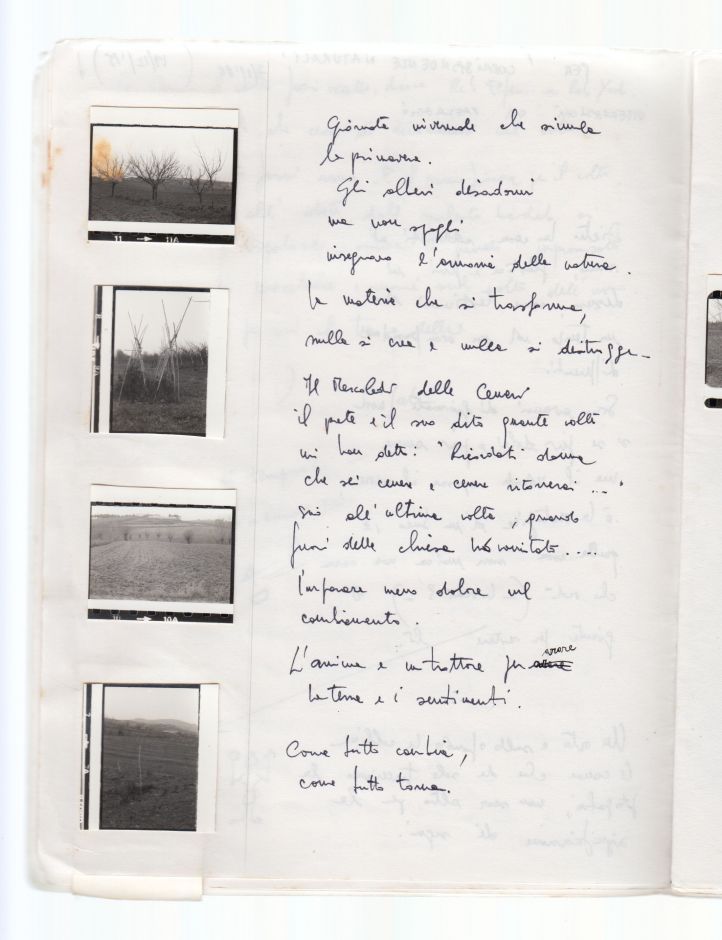 Giornata invernale che simula
la primavera.
Gli alberi disadorni
ma non spogli
insegnano l'armonia della natura.
la materia che si trasforma,
nulla si crea e nulla si distrugge -
Il Mercoledì delle Ceneri
il prete e il suo dito quante volte
mi han detto: "Ricordati donna
che sei cenere e cenere ritornerai ..."
fino all'ultima volta, quando
fuori della chiesa ho vomitato....
l'imparare meno dolore nel
cambiamento.
L'anima è un trattore per arare
la terra e i sentimenti.
Come tutto cambia,
come tutto torna.
11 → 11A